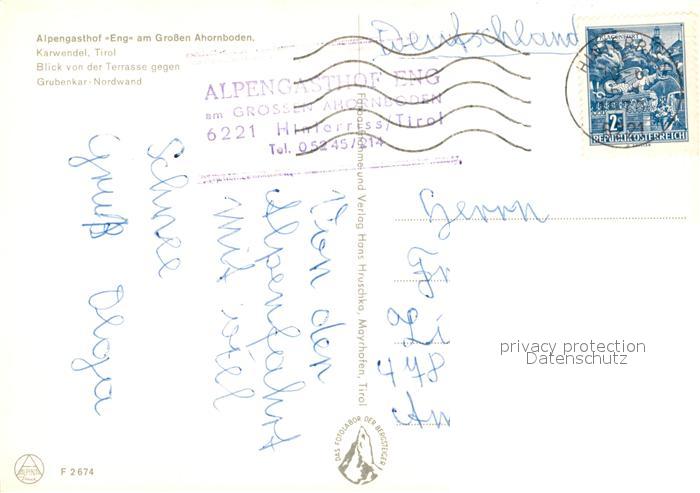 Alpengasthof »Eng« am Großen Ahornboden,
Karwendel, Tirol
Blick von der Terrasse gegen
Grubenkar-Nordwand
Deutschland
ALPENGASTHOF ENG
am GROSSEN AHORNBODEN
6221 Hinterriss/Tirol
Tel. 05245/214
REPUBLIK ÖSTERREICH
2
S
Von der
Alpenfahrt
mit viel
Schnee
Gruß
Verlag Hans Hruschka, Mayrhofen, Tirol
Herrn
Fr
Li
478
An
privacy protection
Datenschutz
DAS FOTOLABOR DER BERGSTEIGER
ALPINA
F 2674